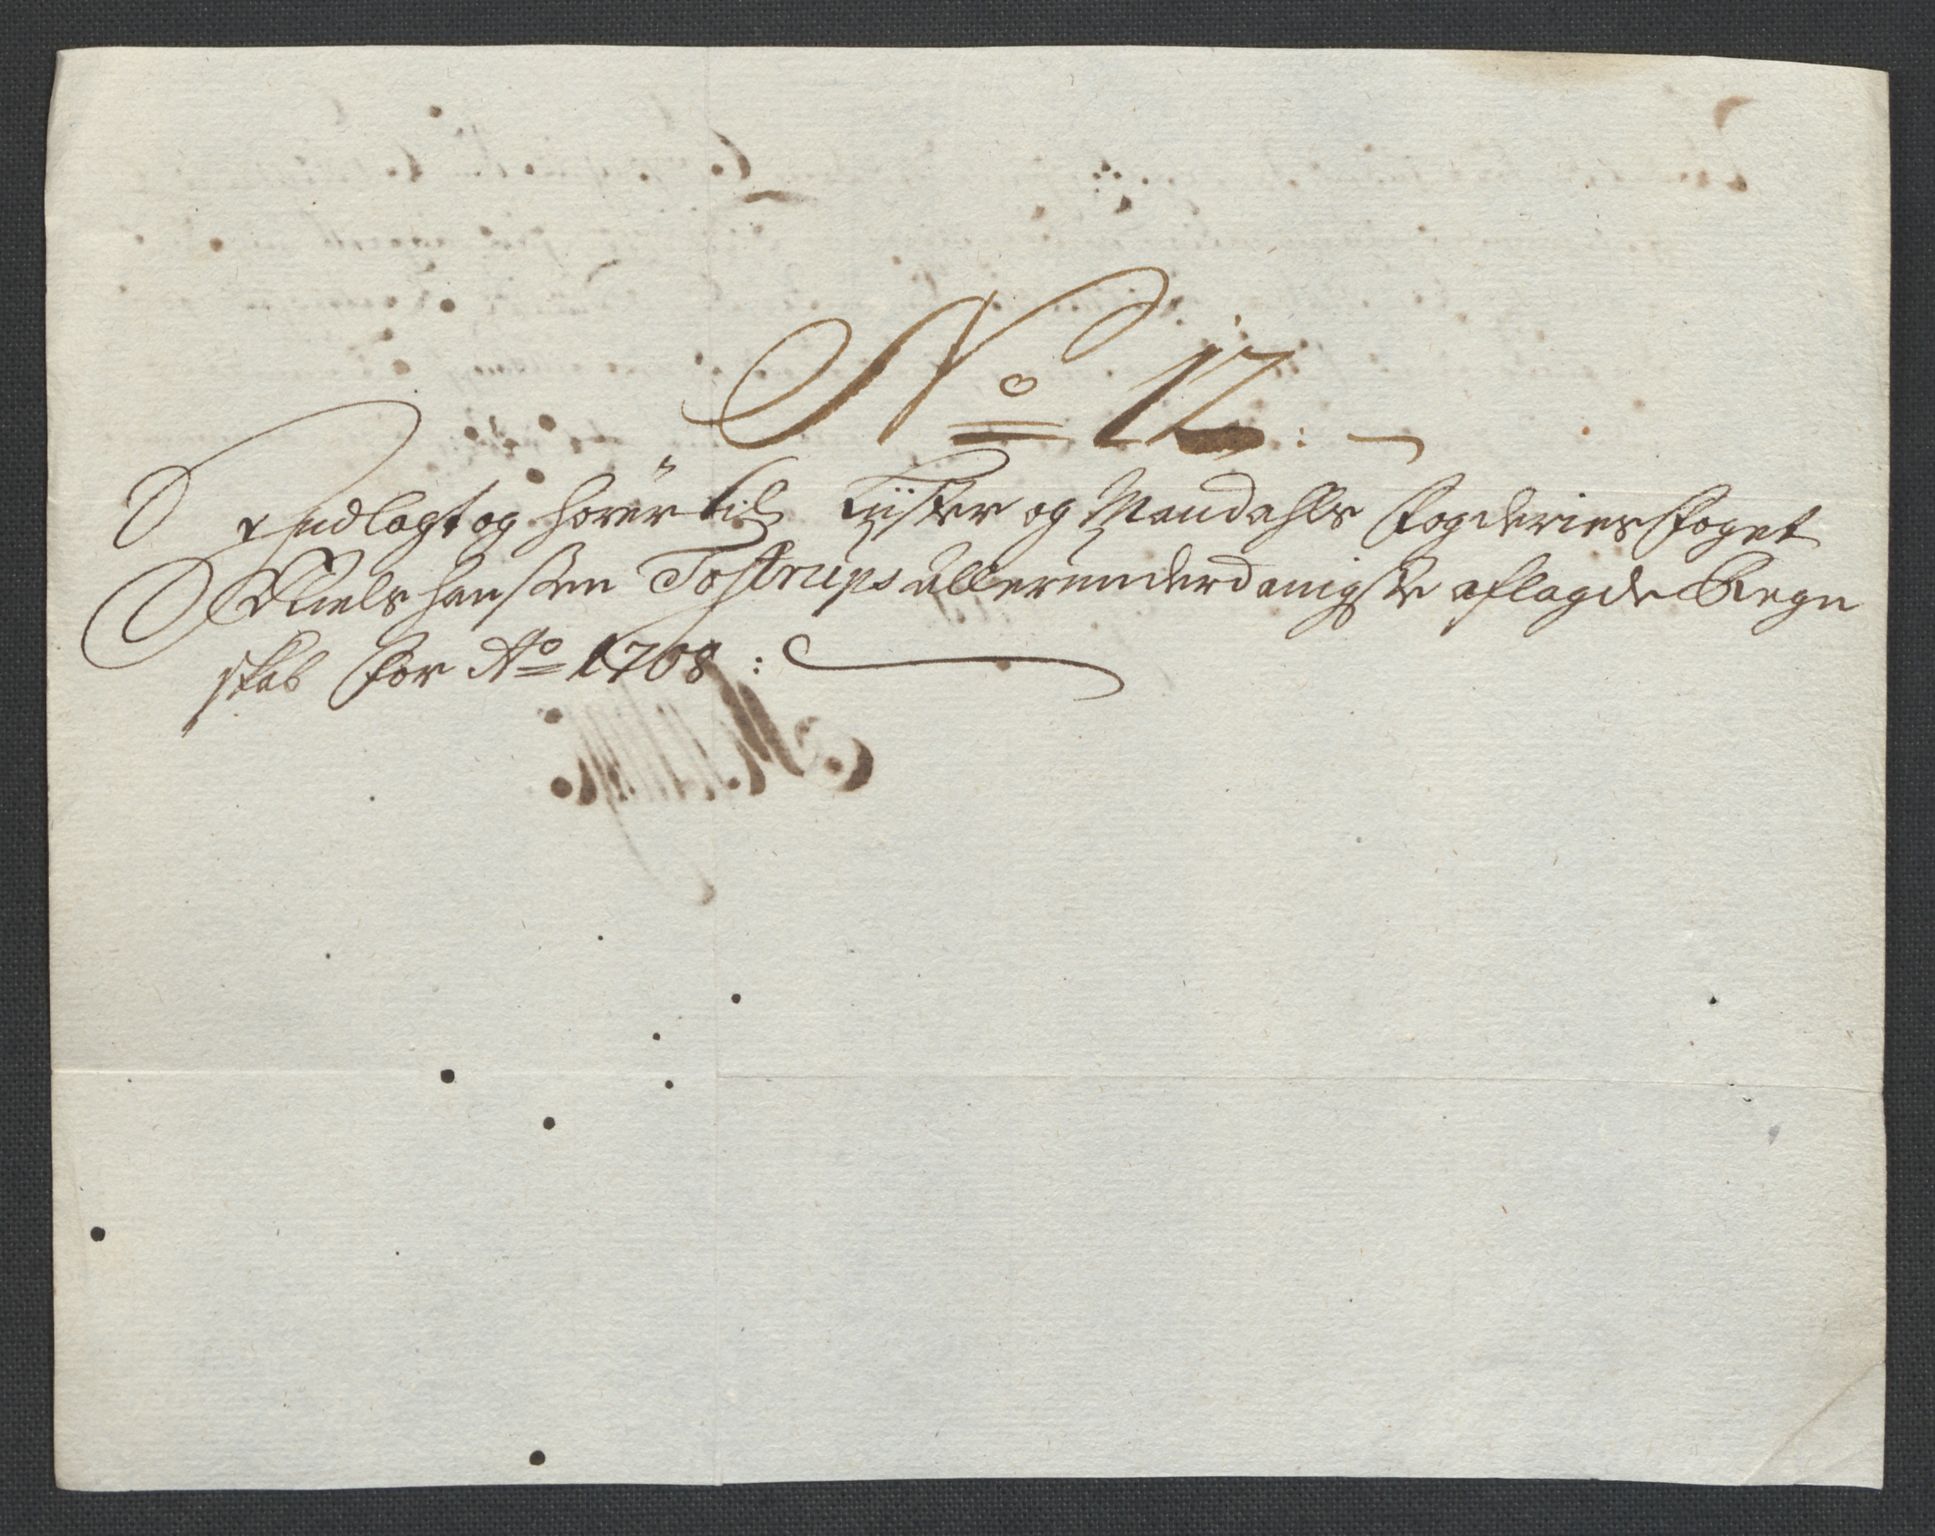 No 12: —
Indlagt og hører til Lister og Mandahls fogderies foget
Niels Hansen Tostrups allerunderdanigste aflagde Regn
skab for Ao 1708: